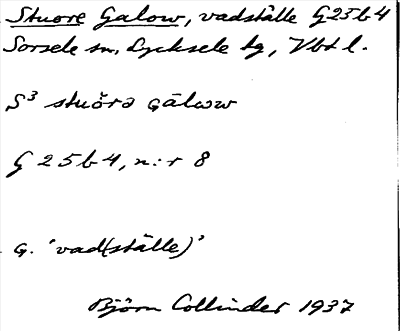 Stuore Galow, vadställe G25b4
Sorsele sn, Lycksele lg, Vbtl.
S³ stuŏrə Gālow
G 25b4, n:r 8
G. 'vad(ställe)'
Björn Collinder 1937